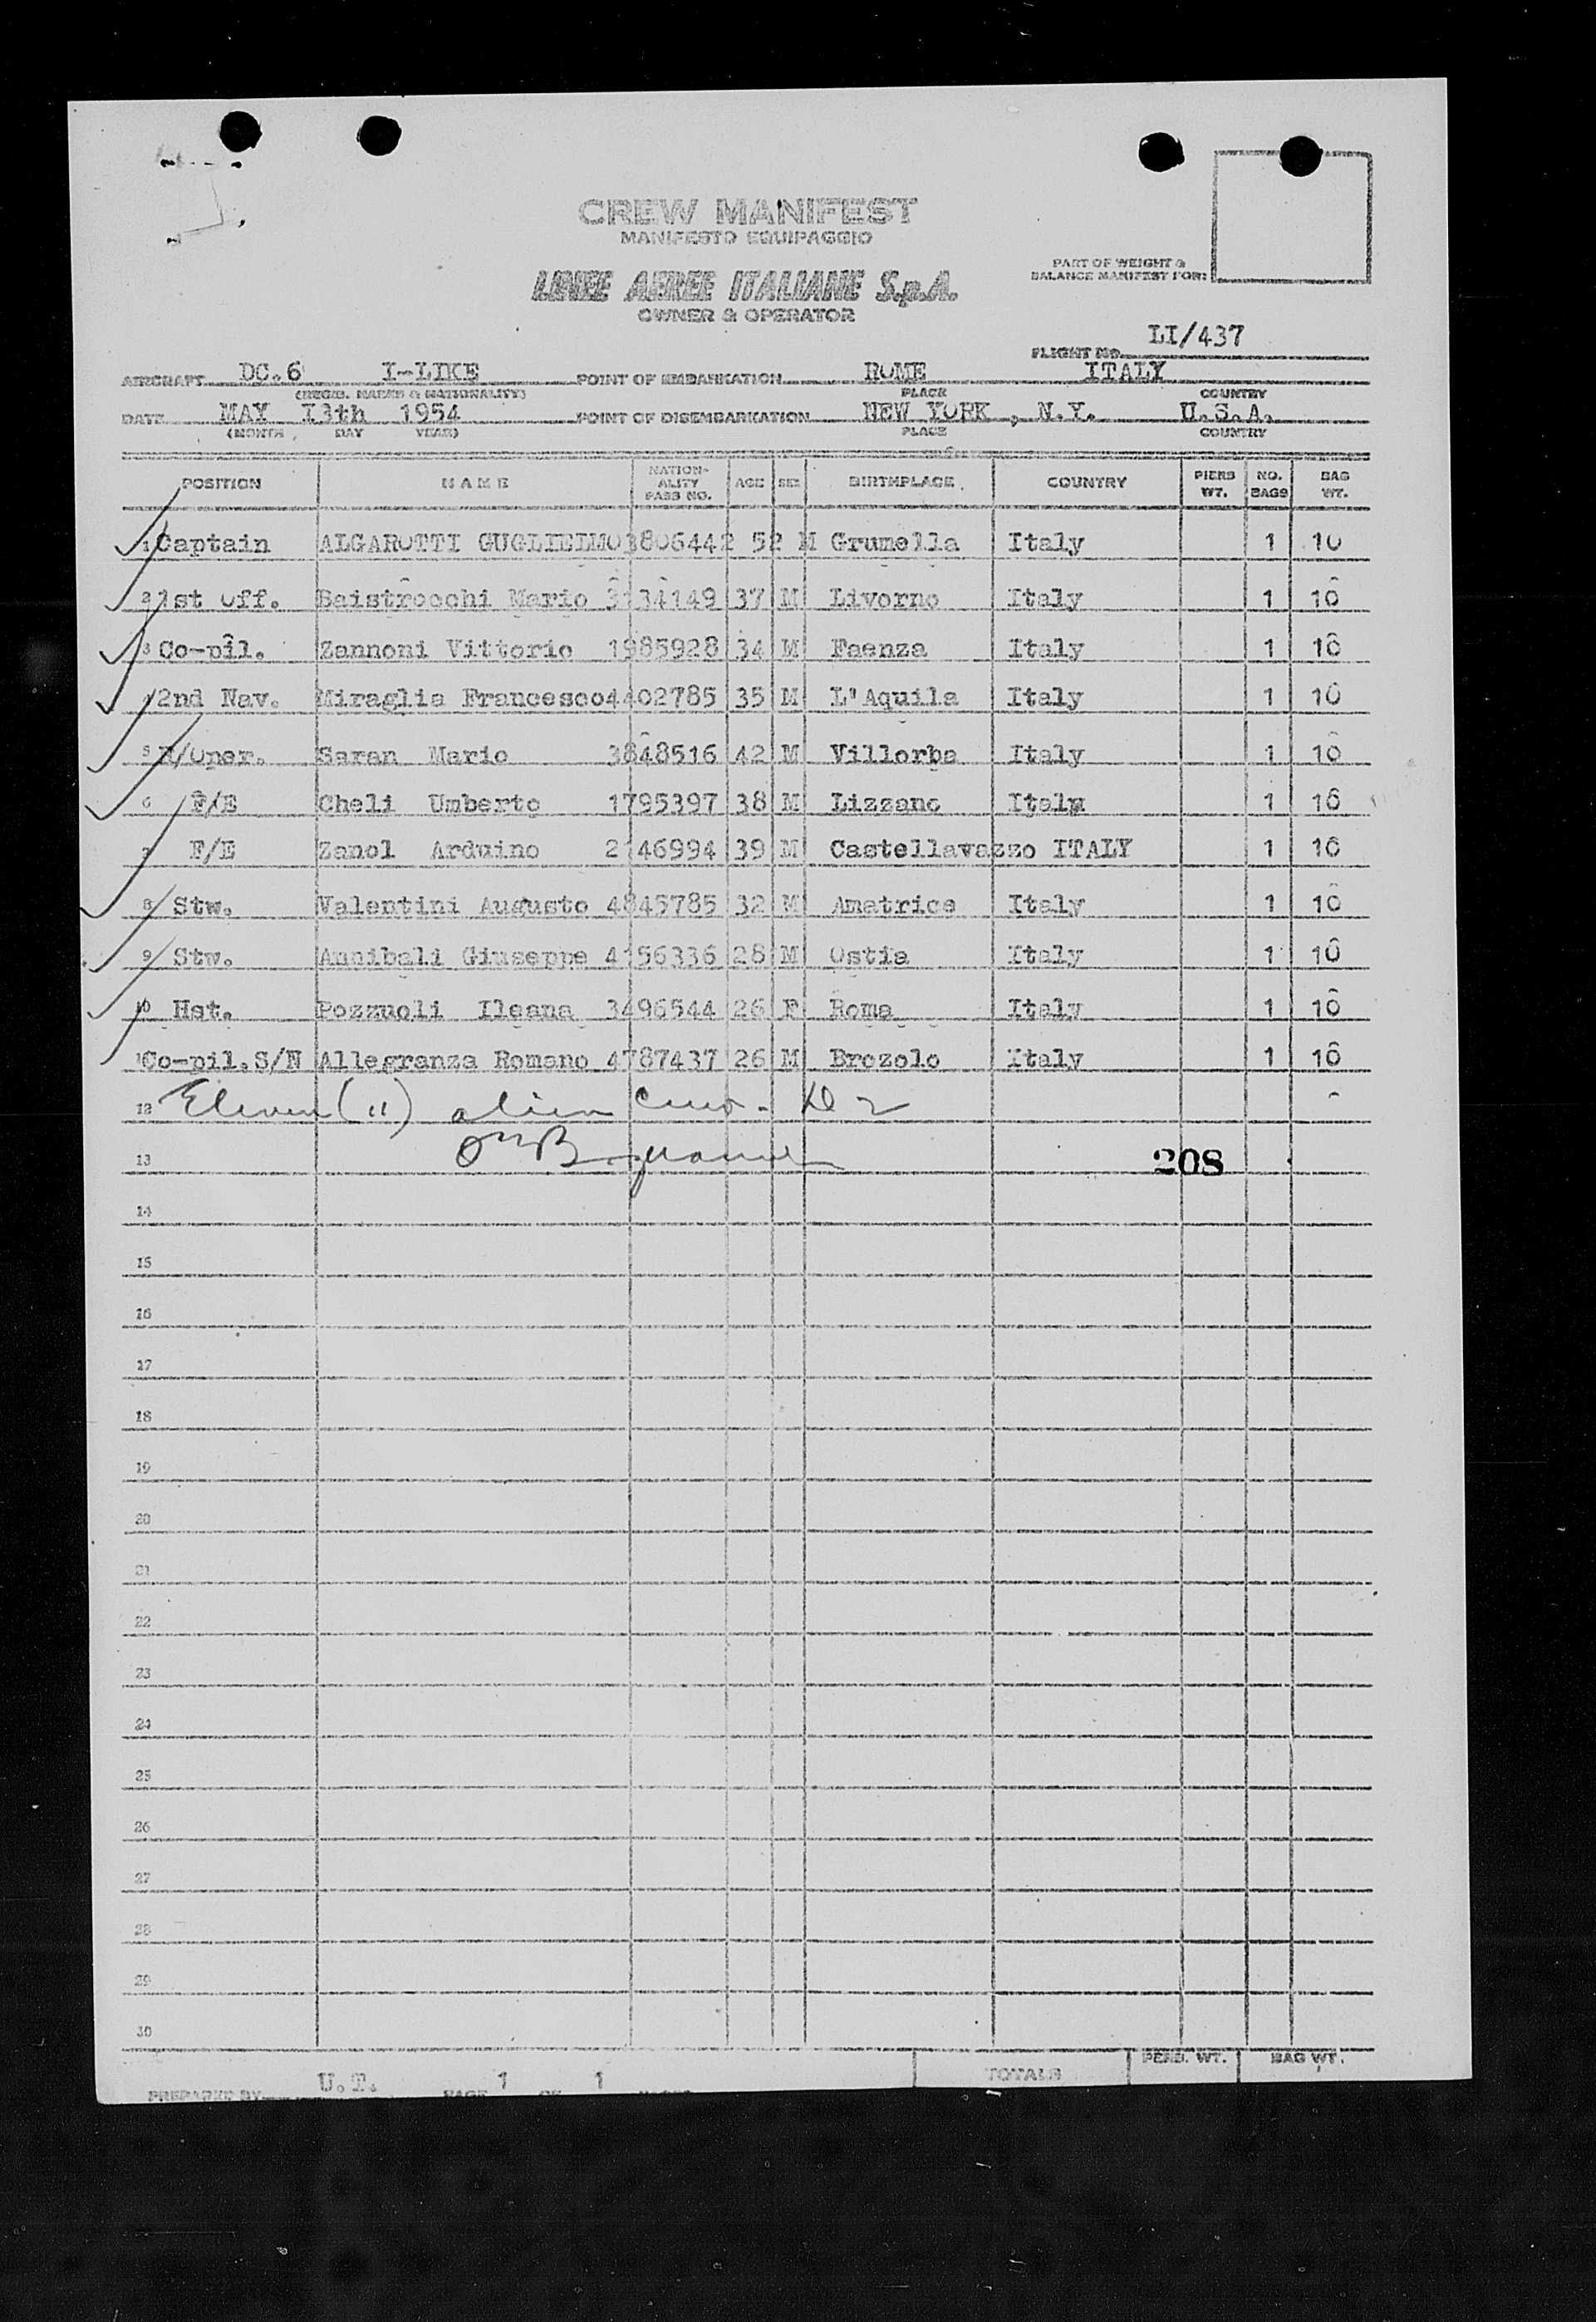 CREW MANIFEST
MANIFESTO EQUIPAGGIO
LINEE AEREE ITALIANE S.p.A.
OWNER & OPERATOR
PART OF WEIGHT &
BALANCE MANIFEST FOR:
FLIGHT NO. LI/437
AIRCRAFT DC.6 I-LIKE POINT OF EMBARKATION ROME ITALY
(REGIS. MARKS & NATIONALITY) PLACE COUNTRY
DATE MAY 13th 1954 POINT OF DISEMBARKATION NEW YORK , N.Y. U.S.A.
(MONTH, DAY YEAR) PLACE COUNTRY
POSITION NAME NATION-ALITY PASS NO. AGE SEX BIRTHPLACE COUNTRY PERS WT. NO. BAGS BAG WT.
1 Captain ALGAROTTI GUGLIELMO 3806442 52 M Grumella Italy 1 10
2 1st Off. Baistrocchi Mario 3134149 37 M Livorno Italy 1 10
3 Co-pil. Zannoni Vittorio 1985928 34 M Faenza Italy 1 10
4 2nd Nav. Miraglia Francesco 4402785 35 M L'Aquila Italy 1 10
5 R/Oper. Saran Mario 3848516 42 M Villorba Italy 1 10
6 F/E Cheli Umberto 1795397 38 M Lizzano Italy 1 10
7 F/E Zanol Arduino 2146994 39 M Castellavazzo ITALY 1 10
8 Stw. Valentini Augusto 4845785 32 M Amatrice Italy 1 10
9 Stw. Annibali Giuseppe 4156336 28 M Ostia Italy 1 10
10 Hst. Pozzuoli Ileana 3496544 26 F Roma Italy 1 10
11 Co-pil.S/N Allegranza Romano 4787437 26 M Brozolo Italy 1 10
12 Eleven (11) alien crew. D 2
13 208
14
15
16
17
18
19
20
21
22
23
24
25
26
27
28
29
30
TOTALS PERS. WT. BAG WT.
PREPARED BY U.T. PAGE 1 OF 1